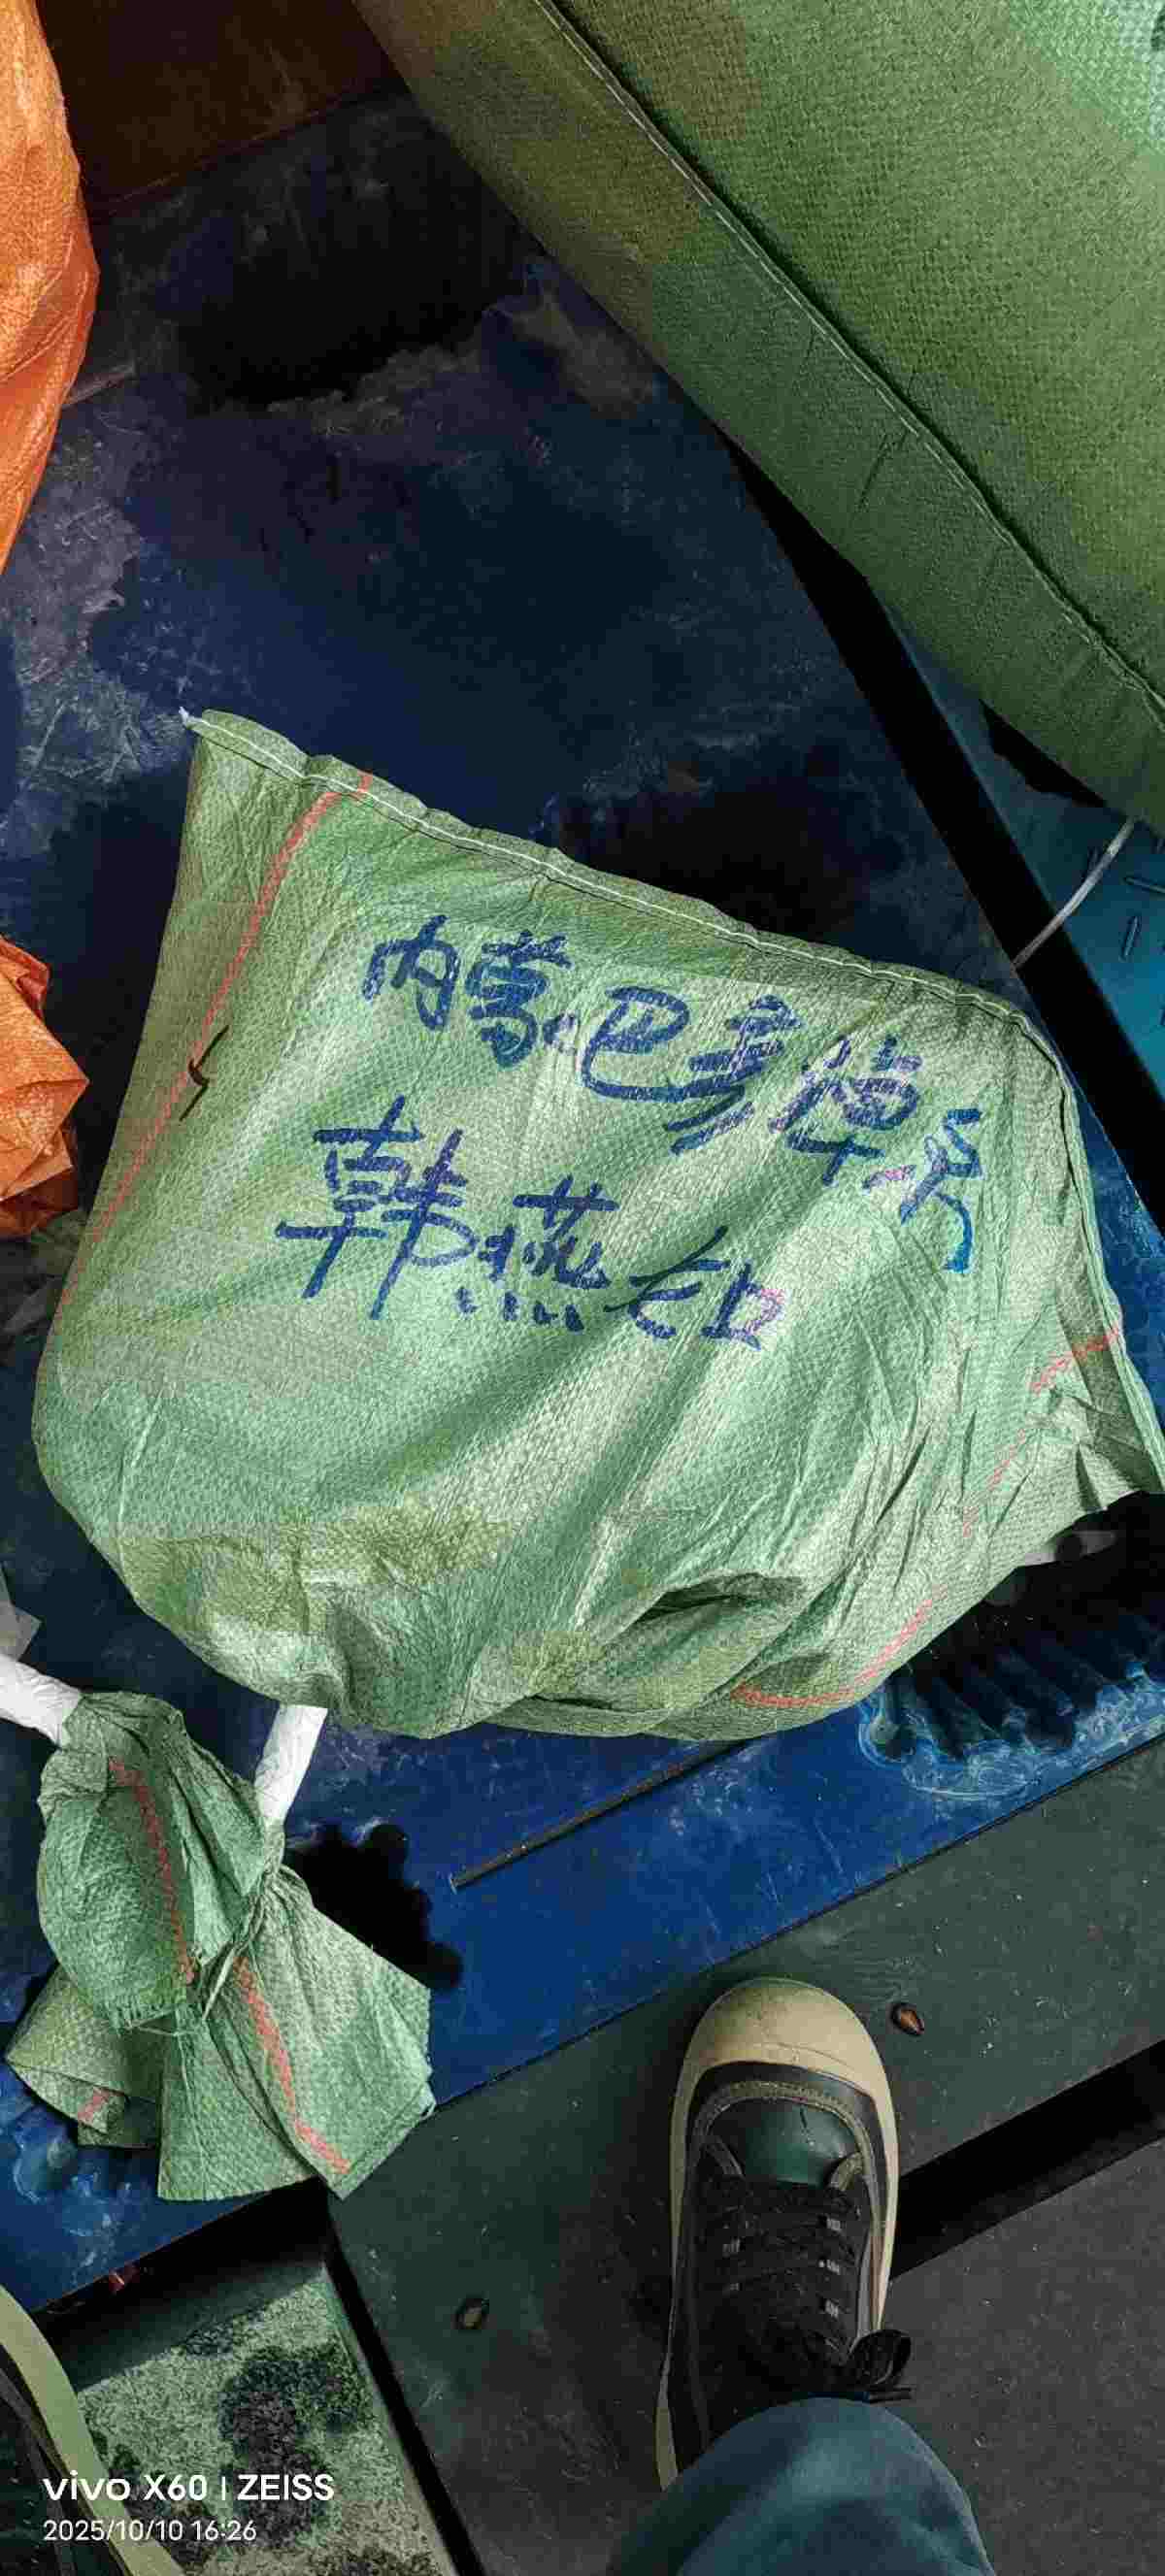 内蒙巴彦淖尔
韩燕
vivo X60 | ZEISS
2025/10/10 16:26